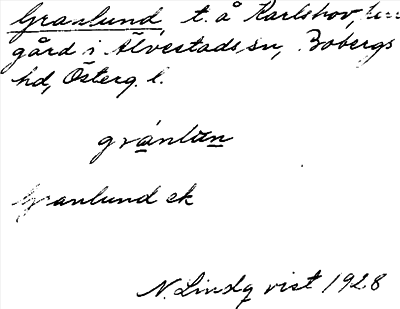 Granlund, t. å Karlshov,
gård i Älvestads sn, Bobergs
hd, Österg. l.
gránlun
Granlund ek
N. Lindqvist 1928